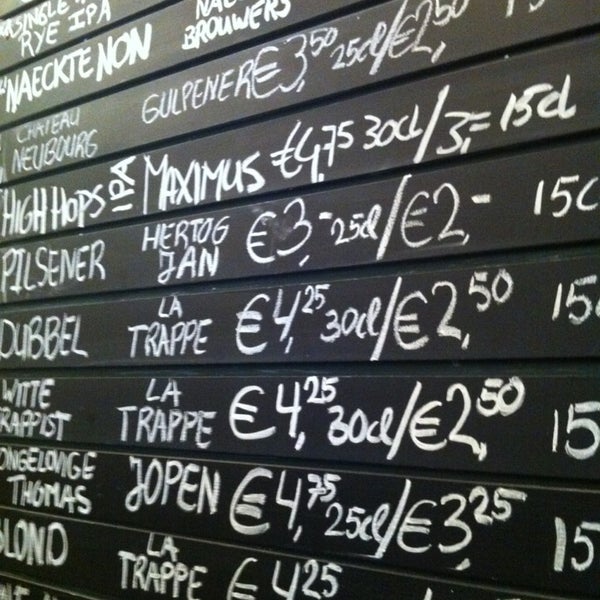 RYE IPA BROUWERS
NAECKTE NON GULPENER €3,50 25cl/€2,50 15
CHATEAU NEUBOURG
HIGH HOPS IPA MAXIMUS €4,75 30cl/3,= 15cl
PILSENER HERTOG JAN €3,- 25cl/€2,- 15c
DUBBEL LA TRAPPE €4,25 30cl/€2,50 15c
WITTE TRAPPIST LA TRAPPE €4,25 30cl/€2,50 15
ONGELOVIGE THOMAS JOPEN €4,75 25cl/€3,25 15
BLOND LA TRAPPE €4,25